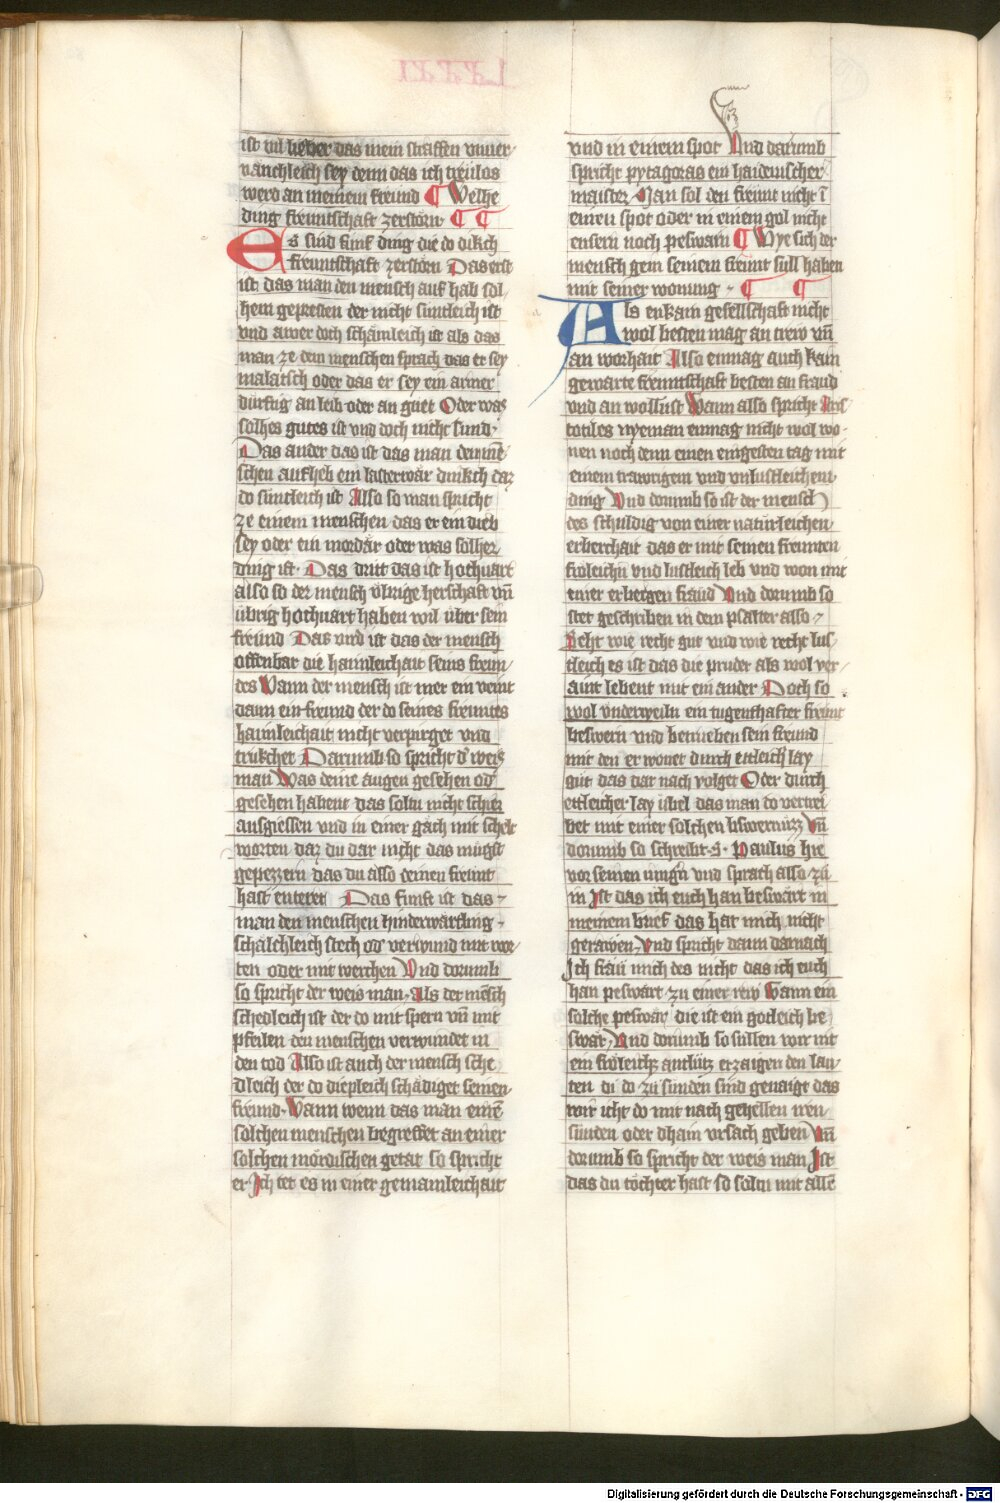 ist vil lieber das mein straffen vnuer-
vanchleich sey denn das ich treulos
werd an meinem freund ¶ Welhe
ding freuntschaft zerstörn ¶ ¶
Es sind fünf ding die do dikch
freuntschaft zerstörn Das erst
ist das man den mensch auf hab sol-
hem gepresten der nicht süntleich ist
vnd awer doch schämleich ist als das
man ze dem menschen sprach das er sey
malatsch oder das er sey ein armer
dürftig an leib oder an guet Oder was
solhes gutes ist vnd doch nicht sund.
Das ander das ist das man dem men-
schen aufheb ein lasterwär dinkch daz
do süntleich ist Also so man spricht
ze einem menschen das er ein dieb
sey oder ein mordär oder was solher
ding ist. Das dritt das ist hochuart
also so der mensch vbrige herschaft vn̄
übrig hochuart haben wil über sein
freund Das vird ist das der mensch
offenbar die haimleichait seins freun-
des Wann der mensch ist mer ein veint
dann ein freund der do seines freuntes
haimleichait nicht verpirget vnd
trukchet Darumb so spricht d' weis
man Was deine augen gesehen od'
gesehen habent das soltu nicht schir
ausgiessen vnd in einer gäch mit schelt
worten daz du dar nicht das mügst
gepezzern das du also deinen freunt
hast enteret Das fünft ist das
man den menschen hinderwärtling
schalchleich stech od' verwund mit wor-
ten oder mit werchen Vnd dorumb
so spricht der weis man. Als der mēsch
schedleich ist der do mit spern vn̄ mit
pfeilen den menschen verwundet in
den tod Also ist auch der mensch sche-
dleich der do diepleich schädiget seinen
freund. Wann wenn das man einē
solchen menschen begreiffet an einer
solchen mördischen getat so spricht
er. Ich tet es in einer gemainleichait
vnd in einem spot Vnd darumb
spricht pytagoras ein haidenischer
maister Man sol den freunt nicht ī
einen spot oder in einem gol nicht
ensern noch peswärn ¶ Wye sich der
mensch gein seinem freunt süll haben
mit seiner wonung ¶ ¶
Als enkain gesellschaft nicht
wol besten mag an trew vn̄
an worhait Also enmag auch kain
gewarte freuntschaft besten an fraud
vnd an wollust Wann also spricht Aris-
totiles nyeman enmag nicht wol wo-
nen noch denn einen eingesten tag mit
einem trawrigem vnd vnlustleichem
ding Vnd dorumb so ist der mensch
des schuldig von einer naturleichen
erberchait das er mit seinen freunten
fröleichn vnd lustleich leb vnd won mit
einer erbergen fräud Vnd dorumb so
stet geschriben in dem psalter also
Seht wie recht gut vnd wie recht lus-
tleich es ist das die pruder als wol ver-
aint lebent mit ein ander Doch so
wol vnderweiln ein tugenthafter freunt
beswern vnd betrueben sein freund
mit den er wonet durch ettleich lay
gut das dar nach volget Oder durch
ettleicher lay übel das man do vertrei-
bet mit einer solchen bswernüzz Vn̄
dorumb so schreibt S. Paulus hie
vor seinen iungn vnd sprach also zü
in Ist das ich euch han beswärt in
meinem brief das hat mich nicht
gerawen. Vnd spricht dann darnach
Ich fräu mich des nicht das ich euch
han peswärt zu einer rew Wann ein
solche peswär die ist ein götleich be-
swär. Vnd dorumb so sullen wir mit
ein fröleichz antlütz erzaigen den läu-
ten di do zü sunden sind genaigt das
wir icht do mit nach gehellen iren
sünden oder dhain vrsach geben Vn̄
dorumb so spricht der weis man Ist
das du töchter hast so soltu mit alle
Digitalisierung gefördert durch die Deutsche Forschungsgemeinschaft - DFG